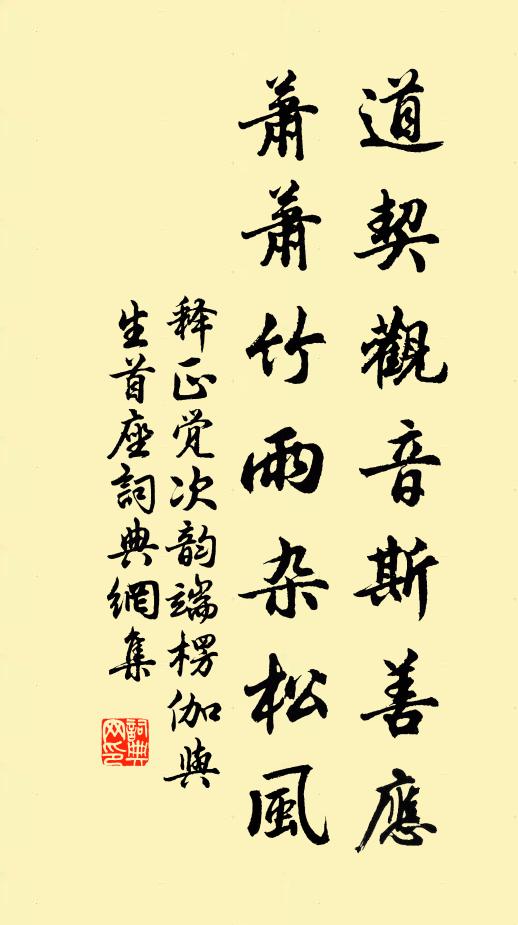 道契觀音斯善應
蕭蕭竹雨杂松風
释正觉次韵端楞伽與
生首座詞典網集
詞典網印